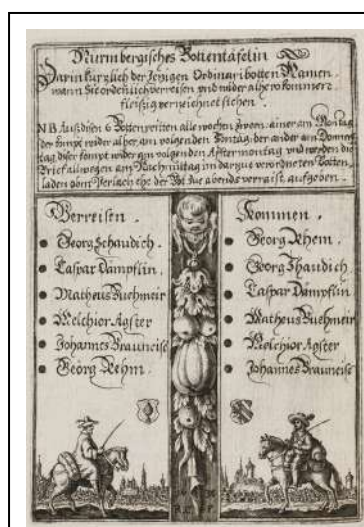 Nurmbergisches Bottentäfelin
Darin kürzlich der Jezigen Ordinari botten Namen,
wann Sie ordenlich verreisen vnd wider alhero kommen
fleisig verzeichnet stehen.
NB Aus disen 6 Botten reitten alle wochen zween, ainer am Montag
der kompt wider alher, am volgenden Sontag, der ander am Donners
tag diser kompt wider am volgenden Aftermontag vnd werden die
Brief allwegen am Nachmittag im darzue verordneten Botten
laden vom Perlach ehe der Bot zue abends verraist, aufgeben.
Verreisen.
Georg Schaudich.
Caspar Dampflin.
Matheus Buehmeir
Melchior Agster
Johannes Brauneise
Georg Rehm.
Kommen.
Georg Rhem.
Georg Schaudich
Caspar Dampflin
Matheus Buehmeir
Melchior Agster
Johannes Brauneise